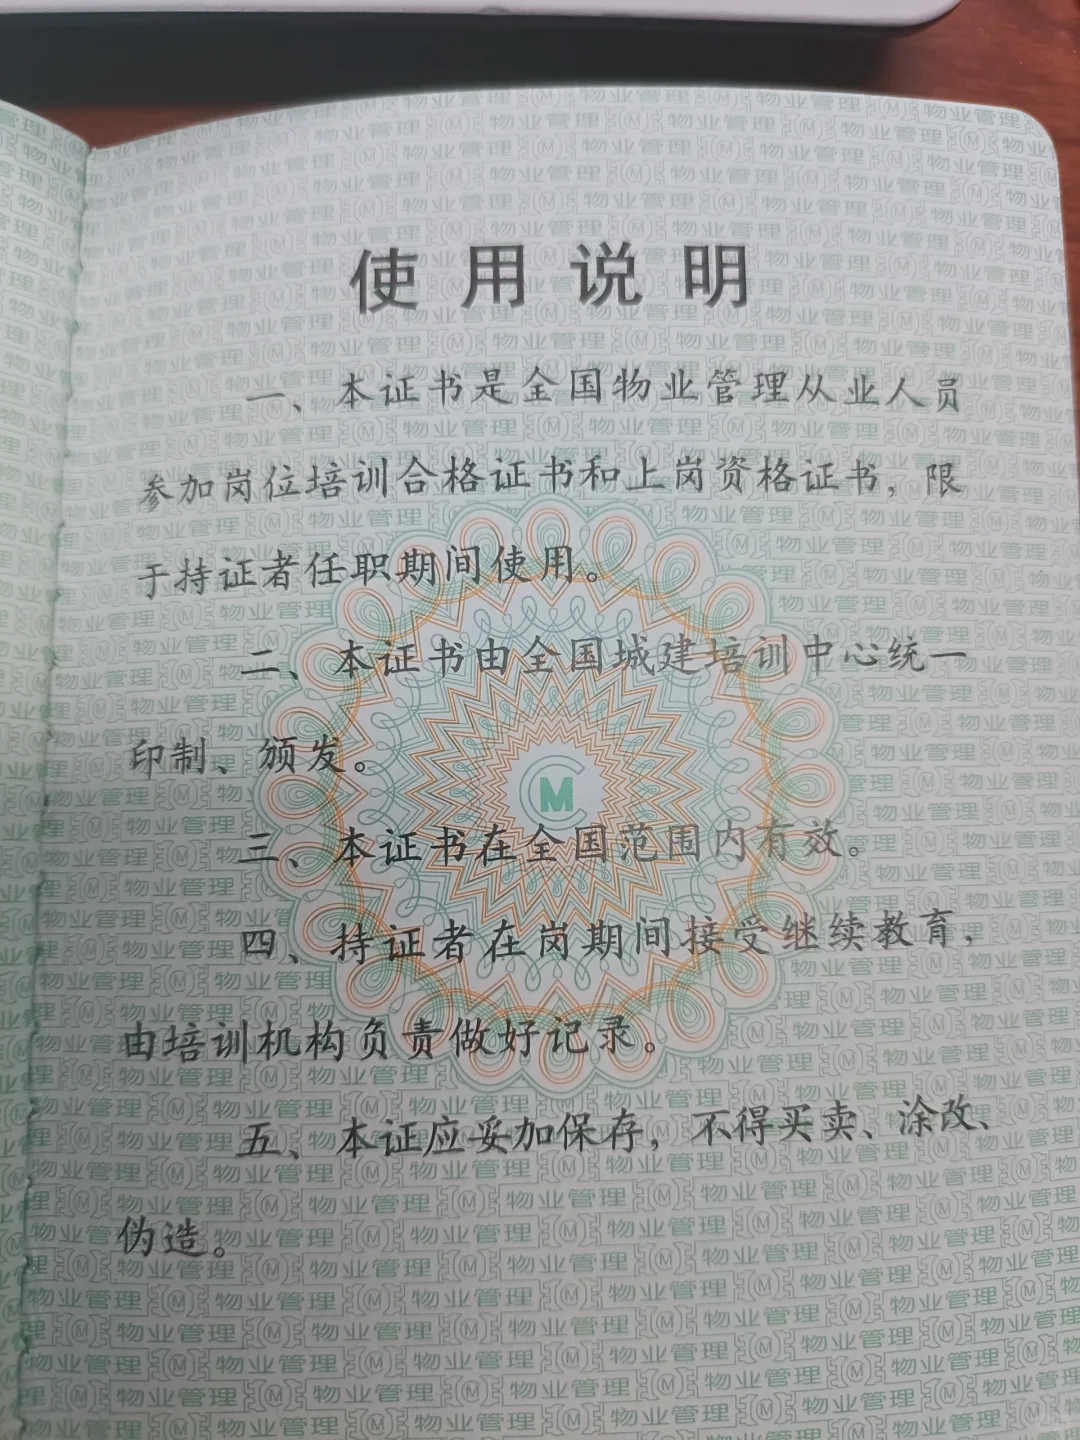 使用说明
一、本证书是全国物业管理从业人员
参加岗位培训合格证书和上岗资格证书，限
于持证者任职期间使用。
二、本证书由全国城建培训中心统一
印制、颁发。
三、本证书在全国范围内有效。
四、持证者在岗期间接受继续教育，
由培训机构负责做好记录。
五、本证应妥加保存，不得买卖、涂改、
伪造。